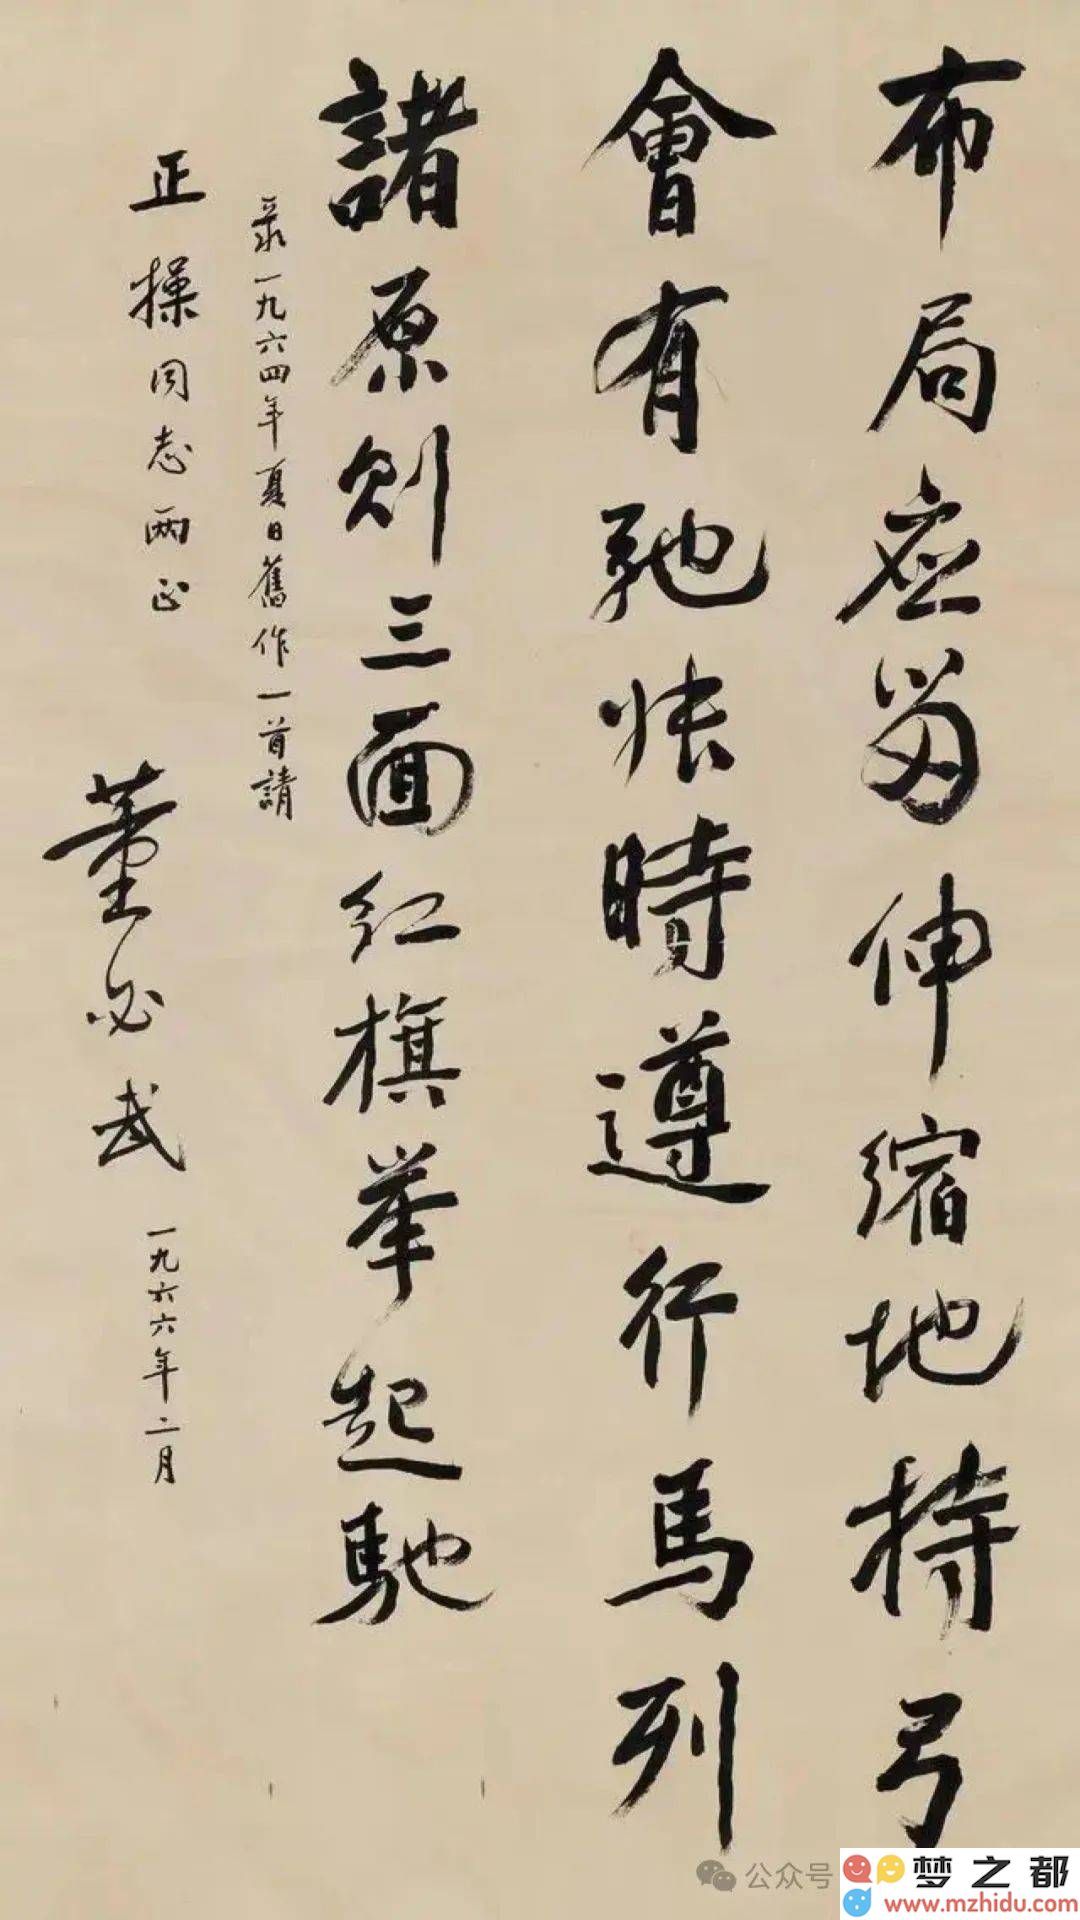 布局应留伸縮地持弓
會有弛张時遵行馬列
諸原則三面红旗举起馳
录一九六四年夏日舊作一首請
正操同志两正
董必武
一九六六年二月
公众号
梦之都
www.mzhidu.com